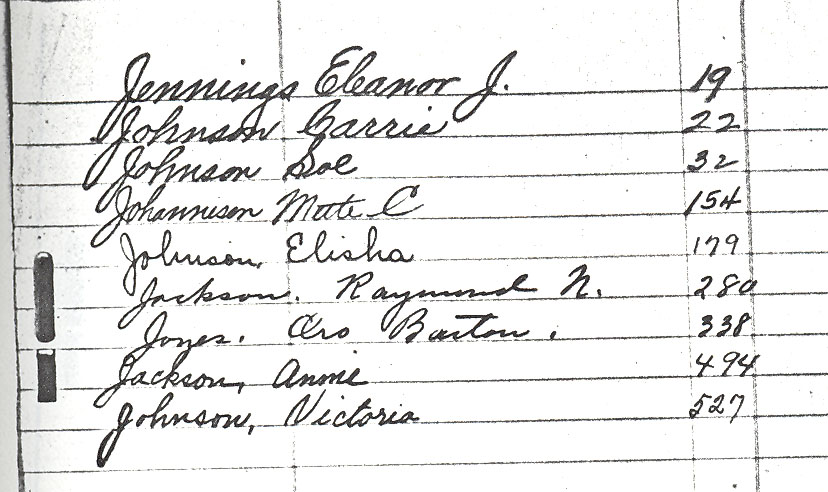 Jennings Eleanor J. 19
Johnson Carrie 22
Johnson Sol 32
Johannesen Mete C 154
Johnson, Elisha 179
Jackson. Raymond N. 280
Jones. Oro Barton. 338
Jackson, Annie 494
Johnson, Victoria 527